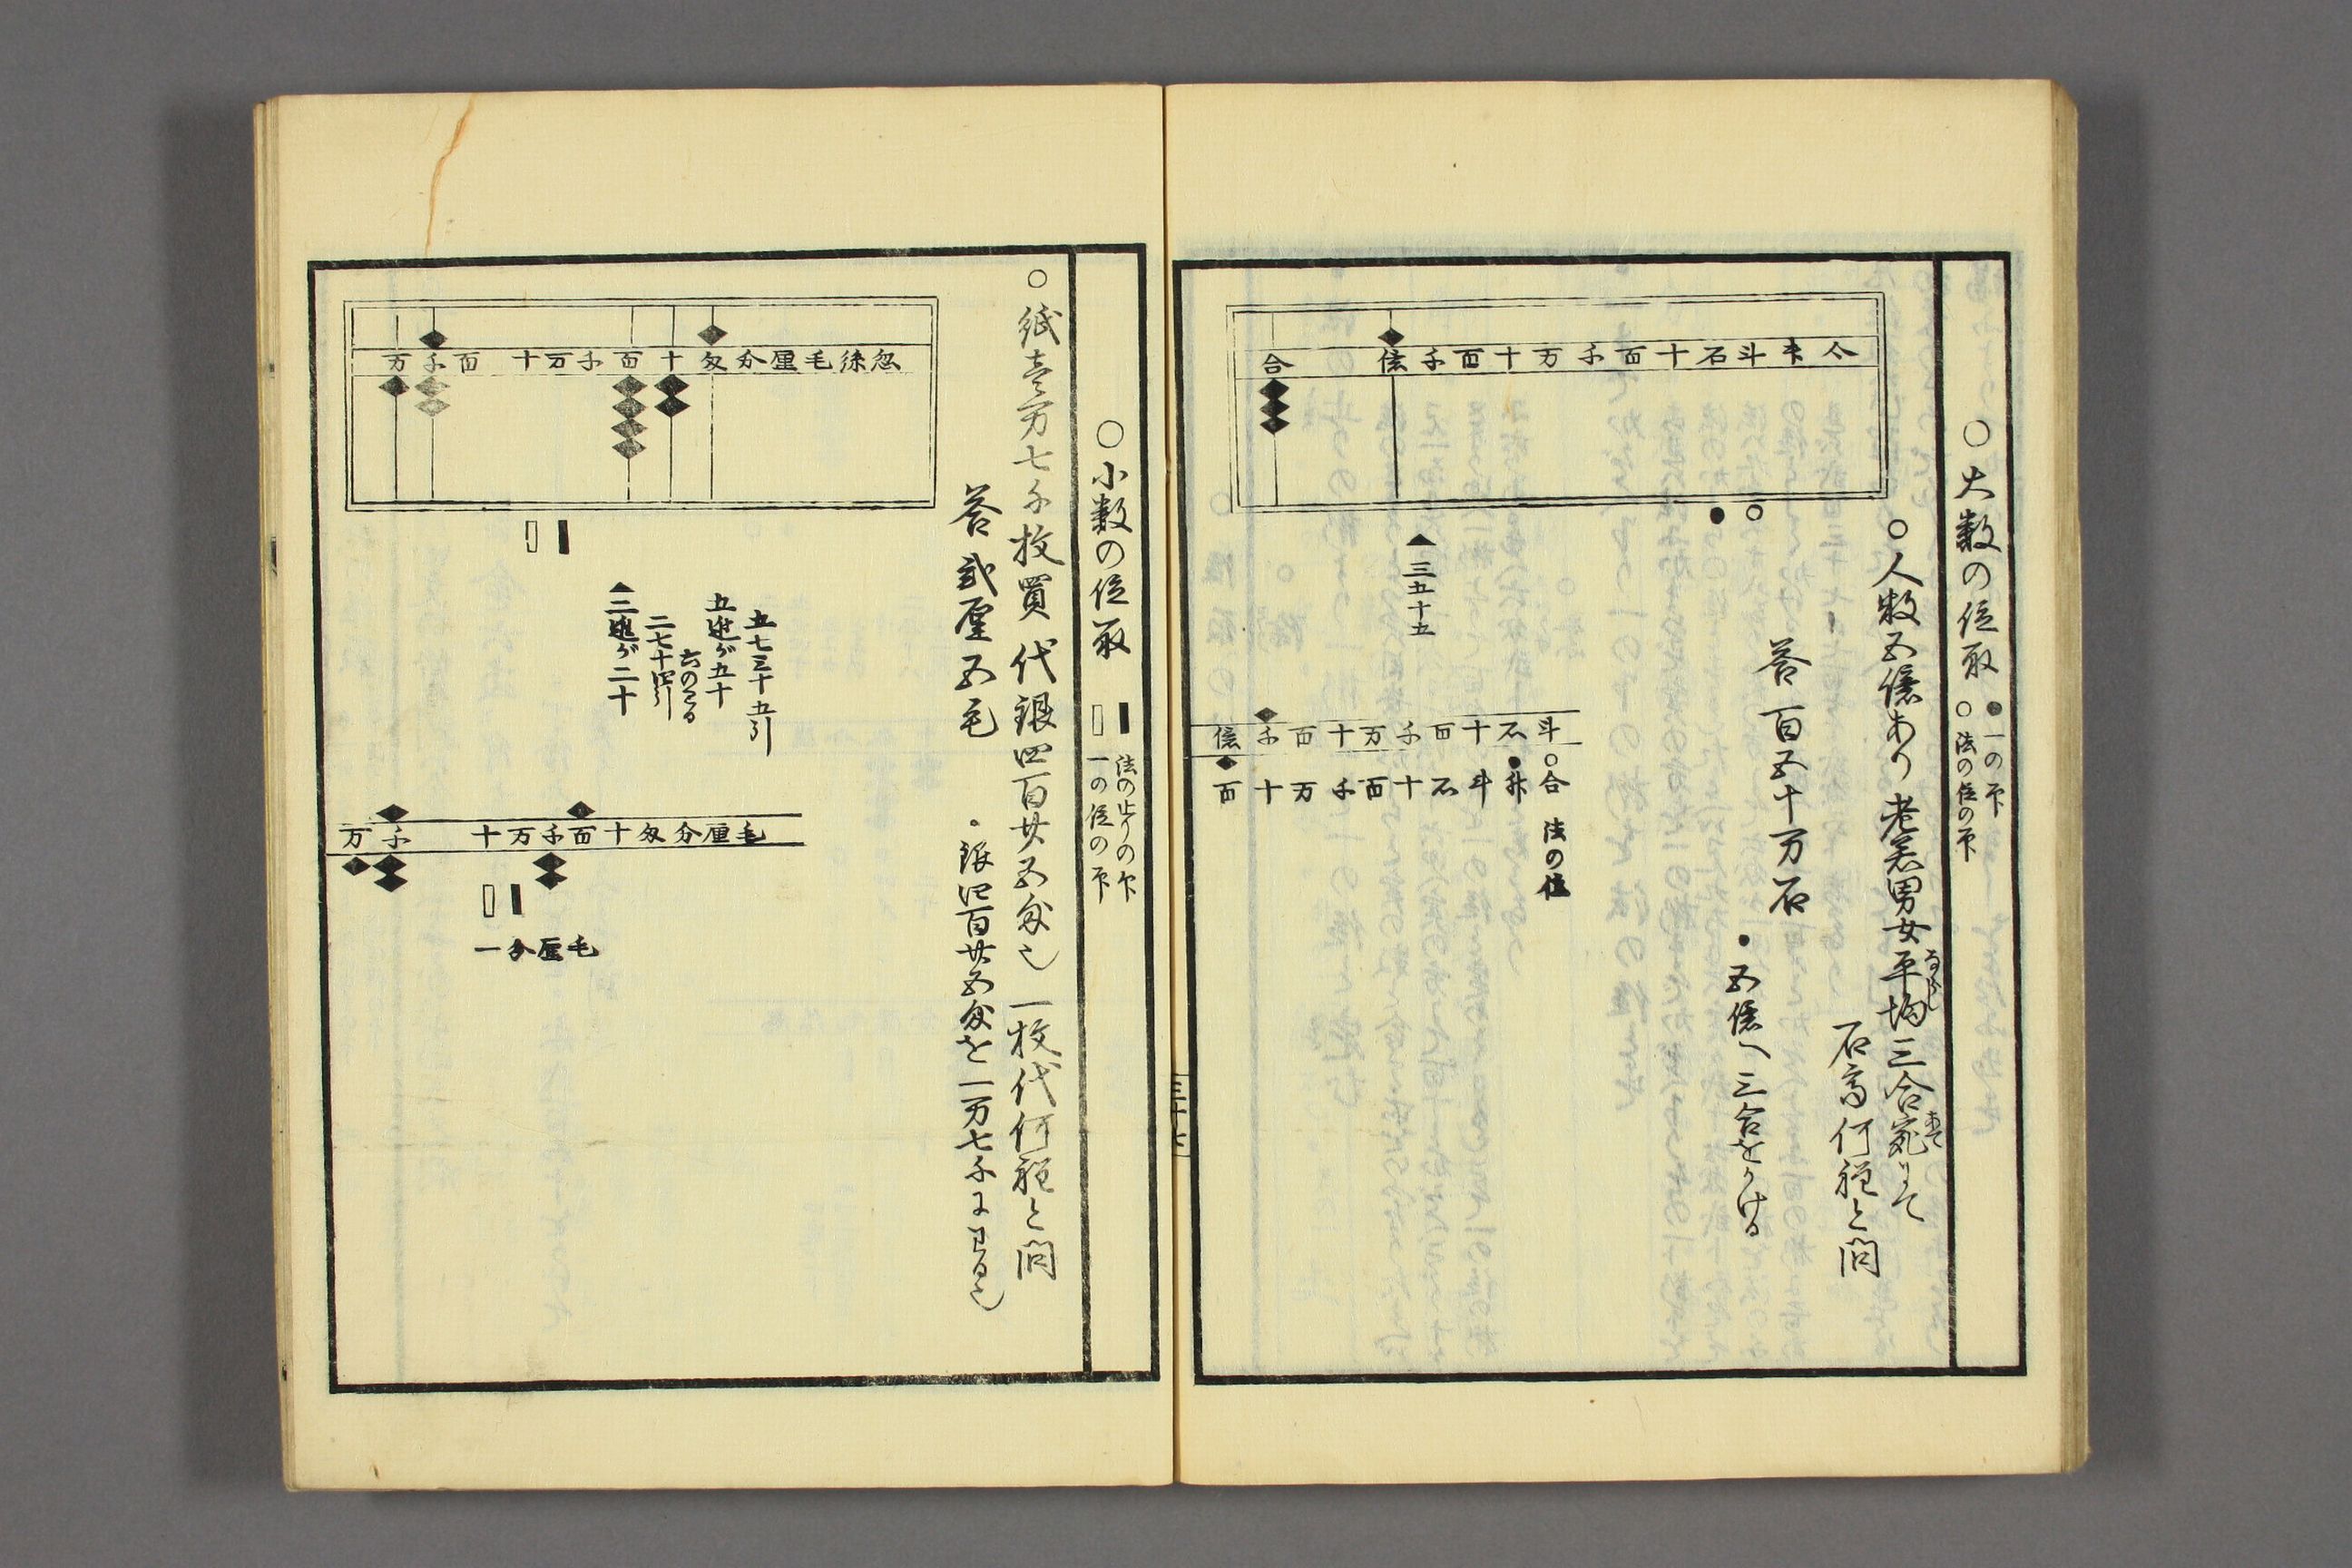 ○大数の位取
●一の印
○法の位の印
○人数五億あり老若男女平均三合宛にして
ならし
あて
石高何程と問
答百五十万石
●五億へ三合をかける
合 億千百十万千百十石斗
▲三五十五
斗石十百千万十百千億
合升斗石十百千万十百
法の位
三十七
○小数の位取
法の止りの印
一の位の印
○紙壱万七千枚買代銀四百廿五匁也一枚代何程と問
答弐厘五毛
●銀四百廿五匁を一万七千にわる也
万千百 十万千百十匁分厘毛絲忽
五七三十五引
五進が五十
六のこる
二七十四引
▲二進が二十
万千 十万千百十匁分厘毛
一分厘毛